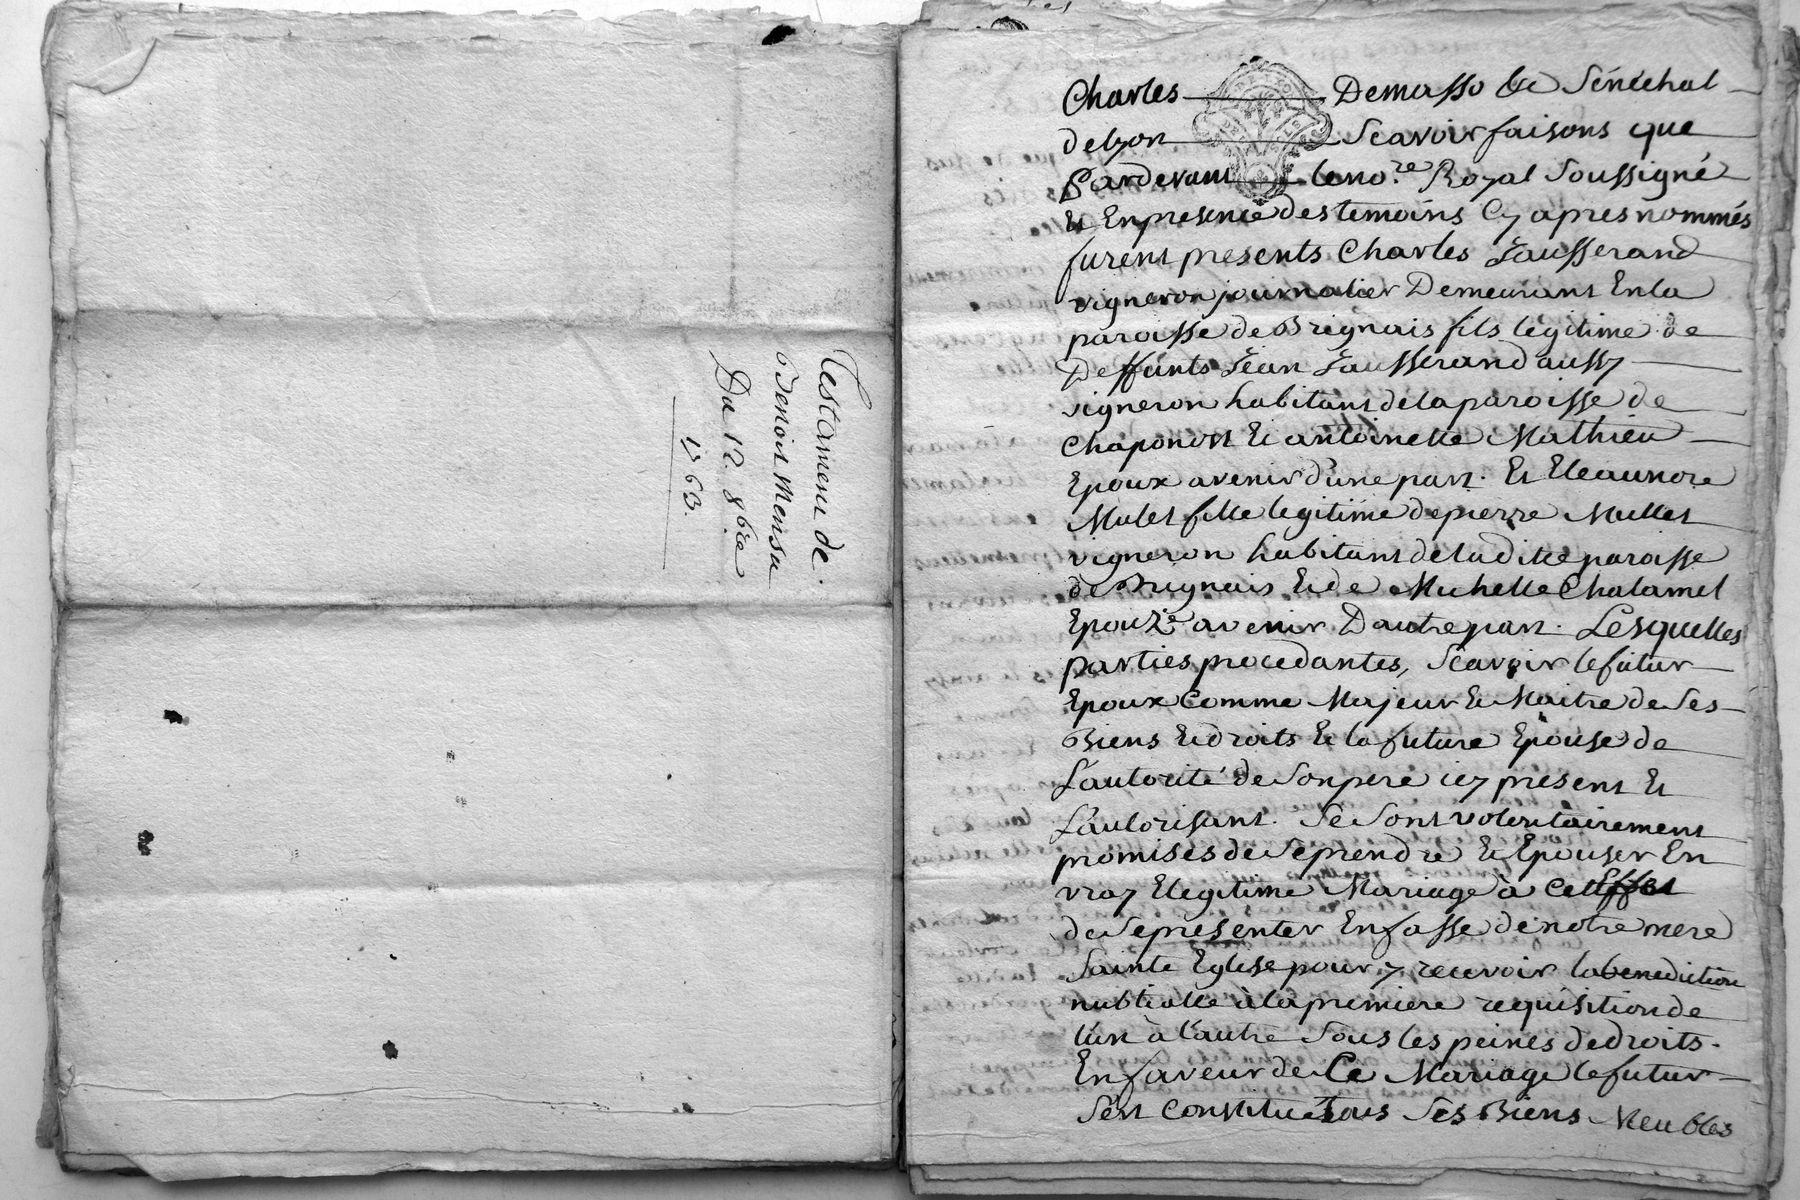 Testament de
Benoist Mensu
Du 12. 8bre
1763.
Charles Demasso &c Sénéchal
de Lyon Scavoir faisons que
Pardevant le no.re Royal Soussigné
Et En presence des temoins Cy apres nommés
furent presents Charles Jausserand
vigneron journalier Demeurant En la
paroisse de Brignais fils legitime de
Deffunts Jean Jausserand aussy
vigneron habitant de la paroisse de
Chaponost Et antoinette Mathieu
Epoux avenir d'une part. Et Eleaunore
Mulet fille legitime de pierre Mullet
vigneron habitant de la ditte paroisse
de Brignais Et de Michelle Chalamel
Epouze avenir D'autre part. Lesquelles
parties procedantes, Scavoir le futur
Epoux Comme Majeur Et Maitre de Ses
Biens Et droits Et la future Epouse de
L'autorité de Son pere icy present Et
L'autorisant. Se Sont volontairement
promises de Se prendre Et Epouser En
vray Et legitime Mariage à Cet Effet
de Se presenter En fasse de notre mere
Sainte Eglise pour y recevoir la benediction
nubtialle à la premiere requisition de
l'un à l'autre Sous les peines de droits.
En faveur de Ce Mariage le futur
S'est Constitué Tous Ses Biens Meubles